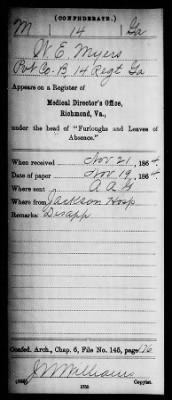 (CONFEDERATE.)
M 14 Ga
W. E. Myers
Pvt Co. B, 14 Regt Ga
Appears on a Register of
Medical Director's Office,
Richmond, Va.,
under the head of "Furloughs and Leaves of
Absence."
When received Nov 21, 1864.
Date of paper Nov 19, 1864.
Where sent A. A. G
Where from Jackson Hosp
Remarks: Disapp
Confed. Arch., Chap. 6, File No. 145, page 176
J W Williams
Copyist.